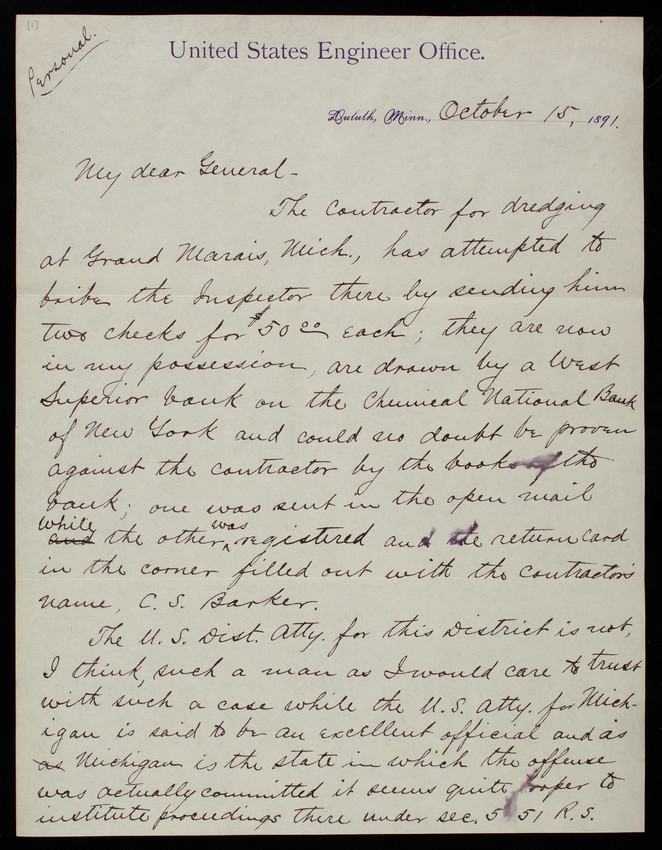 (1)
Personal.
United States Engineer Office.
Duluth, Minn., October 15, 1891.
My dear General -
The contractor for dredging
at Grand Marais, Mich., has attempted to
bribe the Inspector there by sending him
two checks for $50 00 each; they are now
in my possession, are drawn by a West
Superior bank on the Chemical National Bank
of New York and could no doubt be proven
against the contractor by the books of the
bank; one was sent in the open mail
while
and the other was registered and the return card
in the corner filled out with the contractor's
name, C. S. Barker.
The U. S. Dist. Atty. for this District is not,
I think, such a man as I would care to trust
with such a case while the U. S. Atty. for Mich-
igan is said to be an excellent official and as
as Michigan is the state in which the offense
was actually committed it seems quite proper to
institute proceedings there under sec. 5 51 R. S.